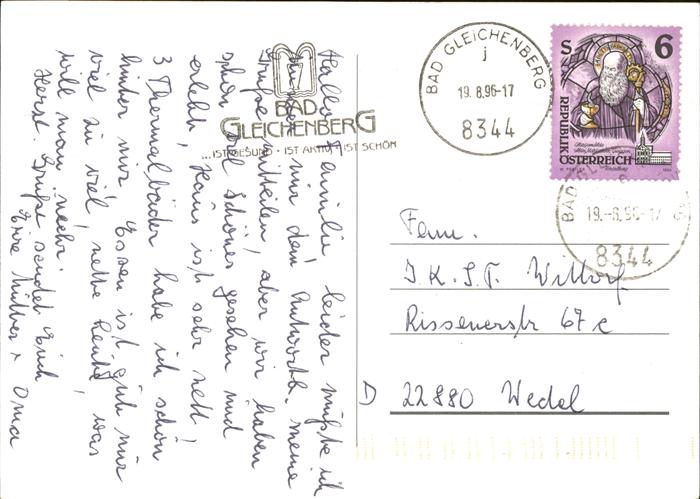 Hallo Familie leider mußte ich
mir dem Antwortk. meine
Grüße mitteilen, aber wir haben
schon viel Schönes gesehen und
erlebt, Haus ist sehr nett!
3 Thermalbäder habe ich schon
hinter mir, Essen ist gut nur
viel zu viel, nette Leute was
will man mehr.
Herzl. Grüße sendet Euch
Eure Mutter + Oma
BAD
GLEICHENBERG
...IST GESUND · IST AKTIV · IST SCHÖN
BAD GLEICHENBERG
j
19.8.96-17
8344
S 6
REPUBLIK
ÖSTERREICH
BAD
19.-8.96-17
8344
Fam.
J.K.S.T. Wittorf
Rissenerstr 67c
D 22880 Wedel